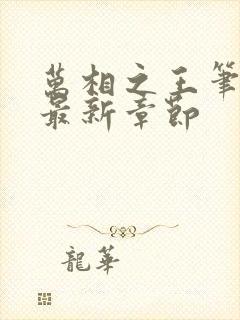 萬相之王筆
最新章節
龍華